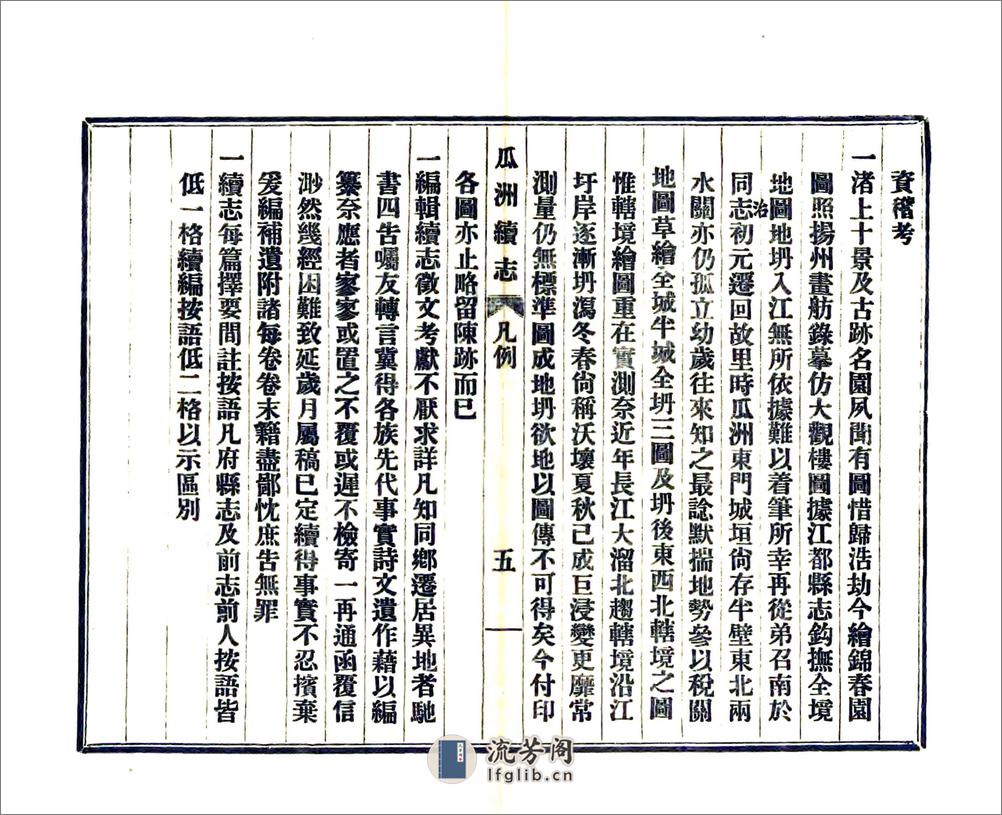 資稽考
一渚上十景及古跡名園夙聞有圖惜歸浩劫今繪錦春園
圖照揚州畫舫錄摹仿大觀樓圖據江都縣志鈎撫全境
地圖地坍入江無所依據難以着筆所幸再從弟召南於
同治
志初元遷回故里時瓜洲東門城垣尙存半壁東北兩
水關亦仍孤立幼歲往來知之最諗默揣地勢參以稅關
地圖草繪全城半城全坍三圖及坍後東西北轄境之圖
惟轄境繪圖重在實測奈近年長江大溜北趨轄境沿江
圩岸逐漸坍瀉冬春尙稱沃壤夏秋已成巨浸變更靡常
測量仍無標準圖成地坍欲地以圖傳不可得矣今付印
瓜洲續志 凡例 五
各圖亦止略留陳跡而已
一編輯續志徵文考獻不厭求詳凡知同鄉遷居異地者馳
書四告囑友轉言冀得各族先代事實詩文遺作藉以編
纂奈應者寥寥或置之不覆或遲不檢寄一再通函覆信
渺然幾經困難致延歲月屬稿已定續得事實不忍擯棄
爰編補遺附諸每卷卷末籍盡鄙忱庶告無罪
一續志每篇擇要間註按語凡府縣志及前志前人按語皆
低一格續編按語低二格以示區別
流芳阁
lfglib.cn